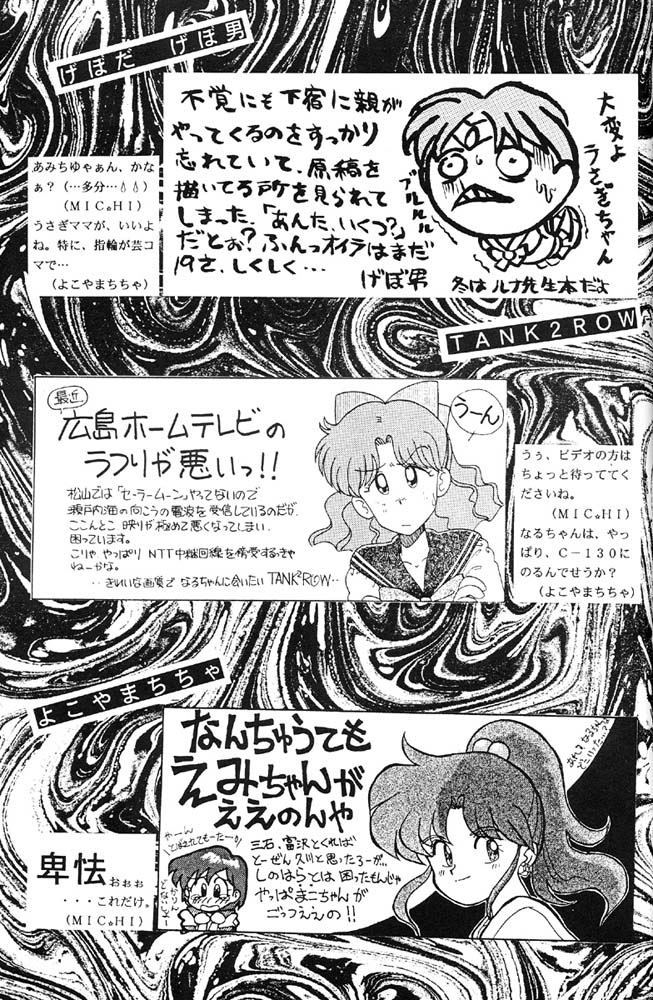 げぼだ げぼ男
不覚にも下宿に親が
やってくるのをすっかり
忘れていて、原稿を
描いてる所を見られて
しまった、「あんた、いくつ?」
だとぉ?ふんっオイラはまだ
19さ、しくしく…
げぼ男
ブルルルル
大変よ
うさぎちゃん
冬はルナ先生本だよ
あみちゆゃぁん、かな
ぁ?(…多分…
(MIC。HI)
うさぎママが、いいよ
ね。特に、指輪が芸コ
マで…
(よこやまちちゃ)
TANK2ROW
最近
広島ホームテレビの
うつりが悪いっ!!
松山では「セーラームーン」やってないので
瀬戸内海の向こうの電波を受信しているのだが、
ここんとこ 映りが極めて悪くなってしまい、
困っています。
こりゃ やっぱり NTT中継回線を傍受するっきゃ
ねーかな。
‥きれいな画質で なるちゃんに会いたい TANK2ROW‥
うーん
うぅ、ビデオの方は
ちょっと待っててく
ださいね。
(MIC。HI)
なるちゃんは、やっ
ぱり、C-130に
のるんでせうか?
(よこやまちちゃ)
よこやまちちゃ
なんちゅうても
えみちゃんが
ええのんや
三石、富沢とくれば
とーぜん久川と思ったろーが、
しのはらとは困ったもんじゃ
やっぱまこちゃんが
ごっつええの!!
やーん
卑怯 おぉぉ
・・・これだけ。
(MIC。HI)